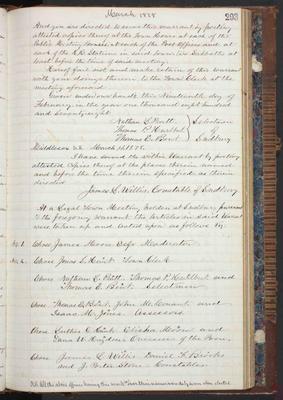 March 1878
293
And you are directed to serve this warrant by posting
attested copies thereof at the Town House at each of the
Public Meeting houses, at each of the Post Offices and at
each of the R.R. Stations in said town six Sabbaths at
least before the time of said meeting.
Hereof fail not, and make return of this warrant
with your doings thereon to the Town Clerk at the
meeting aforesaid.
Given under our hands this Nineteenth day of
February in the year one thousand eight hundred
and seventy eight.
Nathan L. Pratt } Selectmen
Thomas P. Hurlbut } of
Thomas E. Bent } Sudbury
Middlesex S.S. March 1878.
I have served the within Warrant by posting
attested copies thereof at the places therein
and before the time therein specified as therein
directed
James E. Willis, Constable of Sudbury
At a Legal Town Meeting holden at Sudbury pursuant
to the foregoing warrant the articles in said Warrant
were taken up and acted upon as follows viz:
No. 1. Chose James Moore Esqr Moderator
No. 2. Chose Jonas S. Hunt Town Clerk
Chose Nathan L. Pratt, Thomas P. Hurlbut and
Thomas E. Bent Selectmen
Chose Thomas E. Bent, John and
Isaac Jones Assessors.
Chose Luther Hunt and
Overseers of the Poor.
Chose James E. Willis Daniel Brooks
and J. Porter Stone Constables
All the above officers having